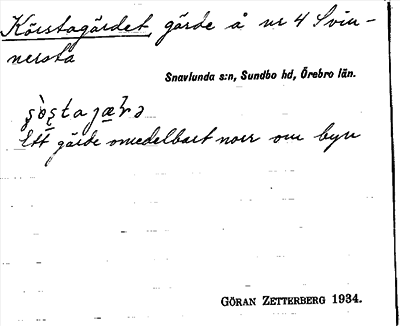 Körstagärdet, gärde å nr 4 Svin-
nersta
Snavlunda s:n, Sundbo hd, Örebro län.
Ett gärde omedelbart norr om byn
GÖRAN ZETTERBERG 1934.